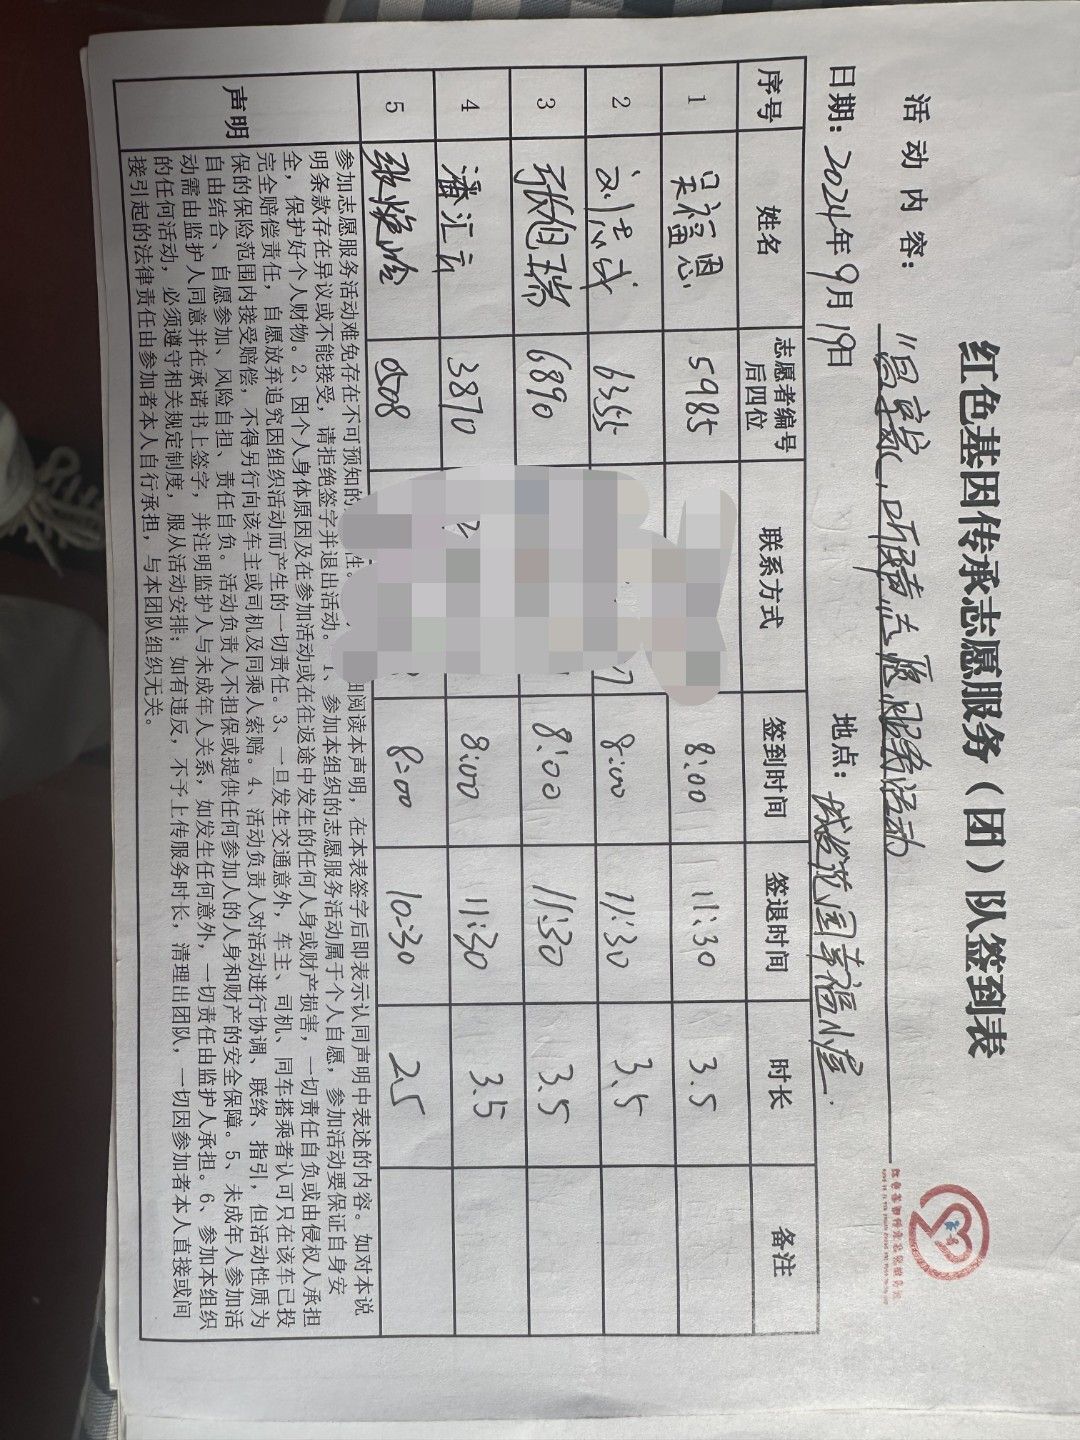 红色基因传承志愿服务（团）队签到表
活动内容："冒号献,听精志愿服务活动
日期：2024年9月19日 地点：城发范围幸福小屋.
序号 姓名 志愿者编号后四位 联系方式 签到时间 签退时间 时长 备注
1 吴福恩 5985 8:00 11:30 3.5
2 刘志成 6355 8:00 11:30 3.5
3 张旭瑞 6890 8:00 11:30 3.5
4 潘汇言 3870 8:00 11:30 3.5
5 张焰 0508 8:00 10:30 2.5
声明
参加志愿服务活动难免存在不可预知的 性。 细阅读本声明，在本表签字后即表示认同声明中表述的内容。如对本说
明条款存在异议或不能接受，请拒绝签字并退出活动。1、参加本组织的志愿服务活动属于个人自愿，参加活动要保证自身安
全，保护好个人财物。2、因个人身体原因及在参加活动或在往返途中发生的任何人身或财产损害，一切责任自负或由侵权人承担
完全赔偿责任，自愿放弃追究因组织活动而产生的一切责任。3、一旦发生交通意外，车主、司机、同车搭乘者认可只在该车已投
保的保险范围内接受赔偿，不得另行向该车主或司机及同乘人索赔。4、活动负责人对活动进行协调、联络、指引，但活动性质为
自由结合、自愿参加、风险自担、责任自负。活动负责人不担保或提供任何参加人的人身和财产的安全保障。5、未成年人参加活
动需由监护人同意并在承诺书上签字，并注明监护人与未成年人关系，如发生任何意外，一切责任由监护人承担。6、参加本组织
的任何活动，必须遵守相关规定制度，服从活动安排；如有违反，不予上传服务时长，清理出团队，一切因参加者本人直接或间
接引起的法律责任由参加者本人自行承担，与本团队组织无关。